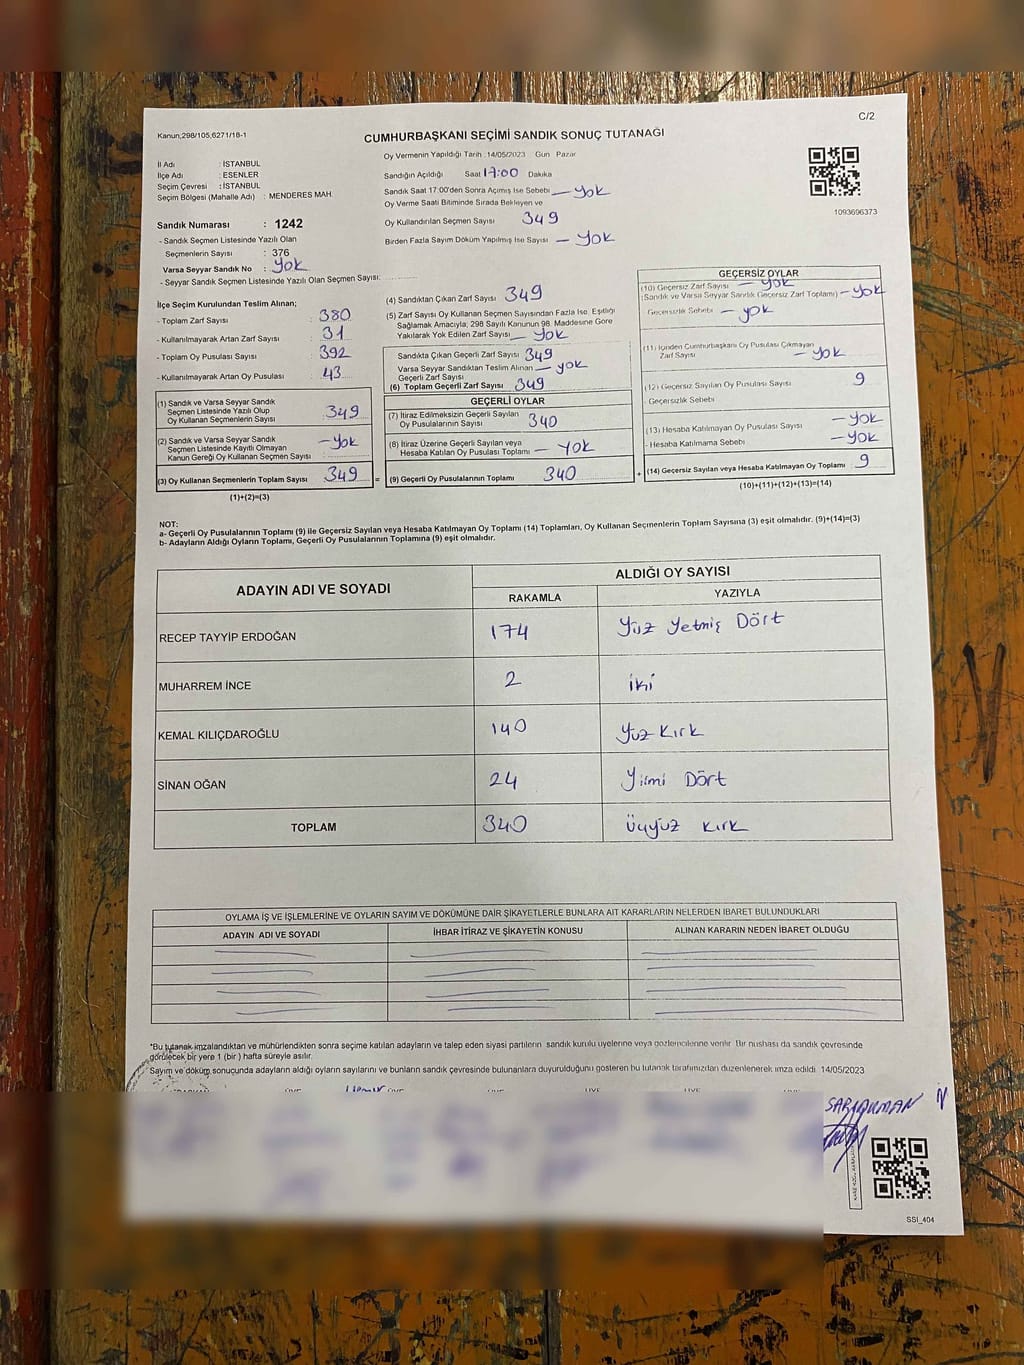 C/2
Kanun;298/105,6271/18-1
CUMHURBAŞKANI SEÇİMİ SANDIK SONUÇ TUTANAĞI
İl Adı : İSTANBUL
İlçe Adı : ESENLER
Seçim Çevresi : İSTANBUL
Seçim Bölgesi (Mahalle Adı) : MENDERES MAH.
Sandık Numarası : 1242
- Sandık Seçmen Listesinde Yazılı Olan
Seçmenlerin Sayısı : 376
Varsa Seyyar Sandık No : Yok
- Seyyar Sandık Seçmen Listesinde Yazılı Olan Seçmen Sayısı:
Oy Vermenin Yapıldığı Tarih :14/05/2023 Gün Pazar
Sandığın Açıldığı Saat 17:00 Dakika
Sandık Saat 17:00'den Sonra Açılmış İse Sebebi — Yok
Oy Verme Saati Bitiminde Sırada Bekleyen ve
Oy Kullandırılan Seçmen Sayısı 349
Birden Fazla Sayım Döküm Yapılmış İse Sayısı — Yok
1093696373
İlçe Seçim Kurulundan Teslim Alınan;
- Toplam Zarf Sayısı : 380
- Kullanılmayarak Artan Zarf Sayısı : 31
- Toplam Oy Pusulası Sayısı : 392
- Kullanılmayarak Artan Oy Pusulası : 43
(1) Sandık ve Varsa Seyyar Sandık
Seçmen Listesinde Yazılı Olup
Oy Kullanan Seçmenlerin Sayısı : 349
(2) Sandık ve Varsa Seyyar Sandık
Seçmen Listesinde Kayıtlı Olmayan
Kanun Gereği Oy Kullanan Seçmen Sayısı : — Yok
(3) Oy Kullanan Seçmenlerin Toplam Sayısı : 349
(1)+(2)=(3)
=
(4) Sandıktan Çıkan Zarf Sayısı 349
(5) Zarf Sayısı Oy Kullanan Seçmen Sayısından Fazla İse, Eşitliği
Sağlamak Amacıyla, 298 Sayılı Kanunun 98. Maddesine Göre
Yakılarak Yok Edilen Zarf Sayısı — Yok
Sandıkta Çıkan Geçerli Zarf Sayısı 349
Varsa Seyyar Sandıktan Teslim Alınan — yok
Geçerli Zarf Sayısı
(6) Toplam Geçerli Zarf Sayısı 349
GEÇERLİ OYLAR
(7) İtiraz Edilmeksizin Geçerli Sayılan
Oy Pusulalarının Sayısı 340
(8) İtiraz Üzerine Geçerli Sayılan veya
Hesaba Katılan Oy Pusulası Toplamı — YOK
(9) Geçerli Oy Pusulalarının Toplamı 340
+
GEÇERSİZ OYLAR
(10) Geçersiz Zarf Sayısı — yok
(Sandık ve Varsa Seyyar Sandık Geçersiz Zarf Toplamı) — Yok
Geçersizlik Sebebi — yok
(11) İçinden Cumhurbaşkanı Oy Pusulası Çıkmayan
Zarf Sayısı — Yok
(12) Geçersiz Sayılan Oy Pusulası Sayısı 9
Geçersizlik Sebebi
(13) Hesaba Katılmayan Oy Pusulası Sayısı — Yok
- Hesaba Katılmama Sebebi — Yok
(14) Geçersiz Sayılan veya Hesaba Katılmayan Oy Toplamı 9
(10)+(11)+(12)+(13)=(14)
NOT:
a- Geçerli Oy Pusulalarının Toplamı (9) ile Geçersiz Sayılan veya Hesaba Katılmayan Oy Toplamı (14) Toplamları, Oy Kullanan Seçmenlerin Toplam Sayısına (3) eşit olmalıdır. (9)+(14)=(3)
b- Adayların Aldığı Oyların Toplamı, Geçerli Oy Pusulalarının Toplamına (9) eşit olmalıdır.
ADAYIN ADI VE SOYADI
ALDIĞI OY SAYISI
RAKAMLA YAZIYLA
RECEP TAYYİP ERDOĞAN 174 Yüz Yetmiş Dört
MUHARREM İNCE 2 iki
KEMAL KILIÇDAROĞLU 140 Yüz Kırk
SİNAN OĞAN 24 Yirmi Dört
TOPLAM 340 Üçyüz Kırk
OYLAMA İŞ VE İŞLEMLERİNE VE OYLARIN SAYIM VE DÖKÜMÜNE DAİR ŞİKAYETLERLE BUNLARA AİT KARARLARIN NELERDEN İBARET BULUNDUKLARI
ADAYIN ADI VE SOYADI İHBAR İTİRAZ VE ŞİKAYETİN KONUSU ALINAN KARARIN NEDEN İBARET OLDUĞU
*Bu tutanak imzalandıktan ve mühürlendikten sonra seçime katılan adayların ve talep eden siyasi partilerin sandık kurulu üyelerine veya gözlemcilerine verilir. Bir nüshası da sandık çevresinde
görülecek bir yere 1 (bir) hafta süreyle asılır.
Sayım ve döküm sonucunda adayların aldığı oyların sayılarını ve bunların sandık çevresinde bulunanlara duyurulduğunu gösteren bu tutanak tarafımızdan düzenlenerek imza edildi. 14/05/2023
SSI_404